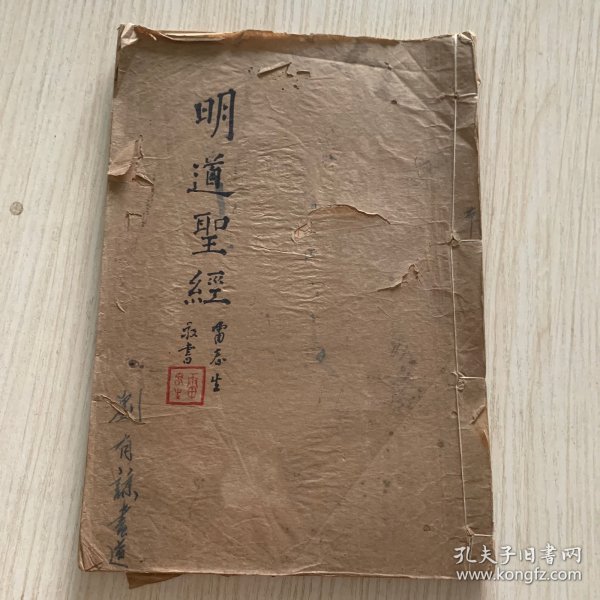 明道聖經
雷志生
敬書
劉有謀書道
孔夫子旧书网
www.kongfz.com